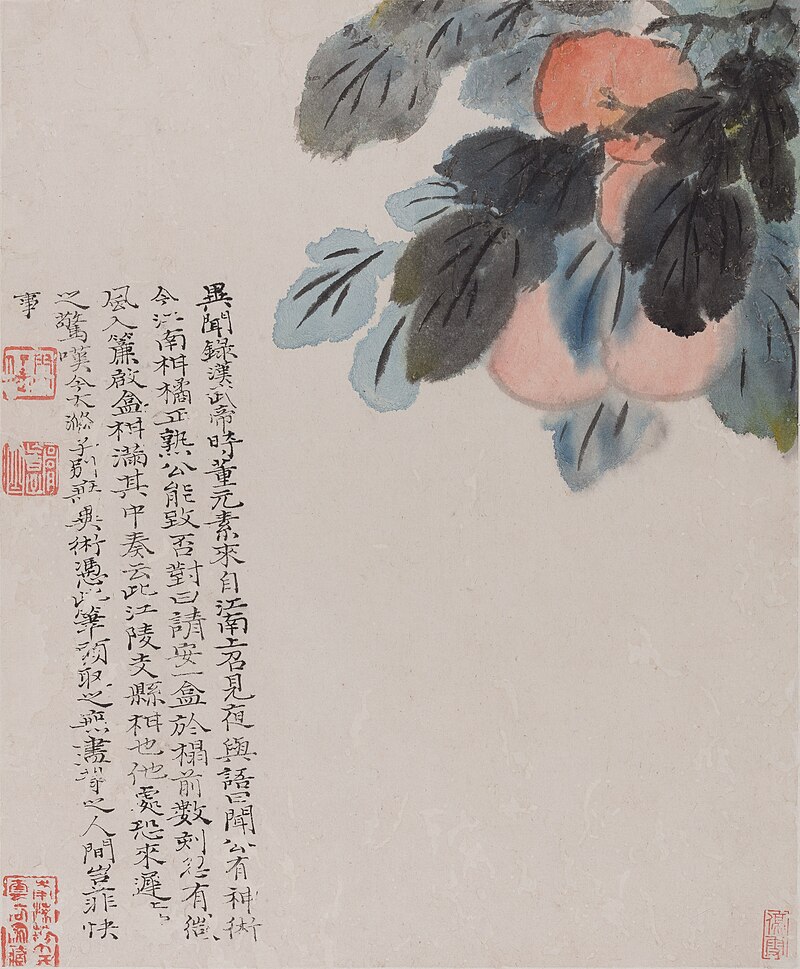 異聞錄漢武帝時董元素來自江南上召見夜與語曰聞公有神術
今江南柑橘正熟公能致否對曰請安一盒於榻前數刻後有微
風入簾啟盒柑滿其中奏云此江陵支縣柑也他處恐來遲上
之驚嘆今大滌子別無異術憑此筆頭取之無盡背之人間豈非快
事